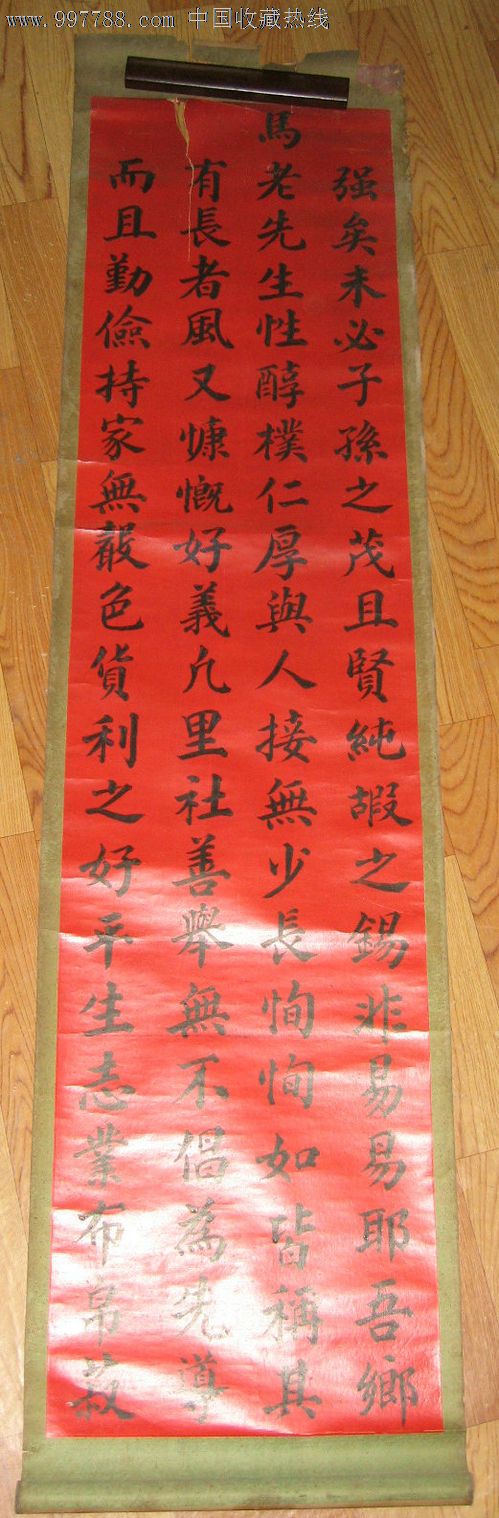 www.997788.com 中国收藏热线
强矣未必子孫之茂且賢純嘏之錫非易易耶吾鄉
馬老先生性醇樸仁厚與人接無少長恂恂如皆稱其
有長者風又慷慨好義凡里社善舉無不倡為先導
而且勤儉持家無聲色貨利之好平生志業布帛菽